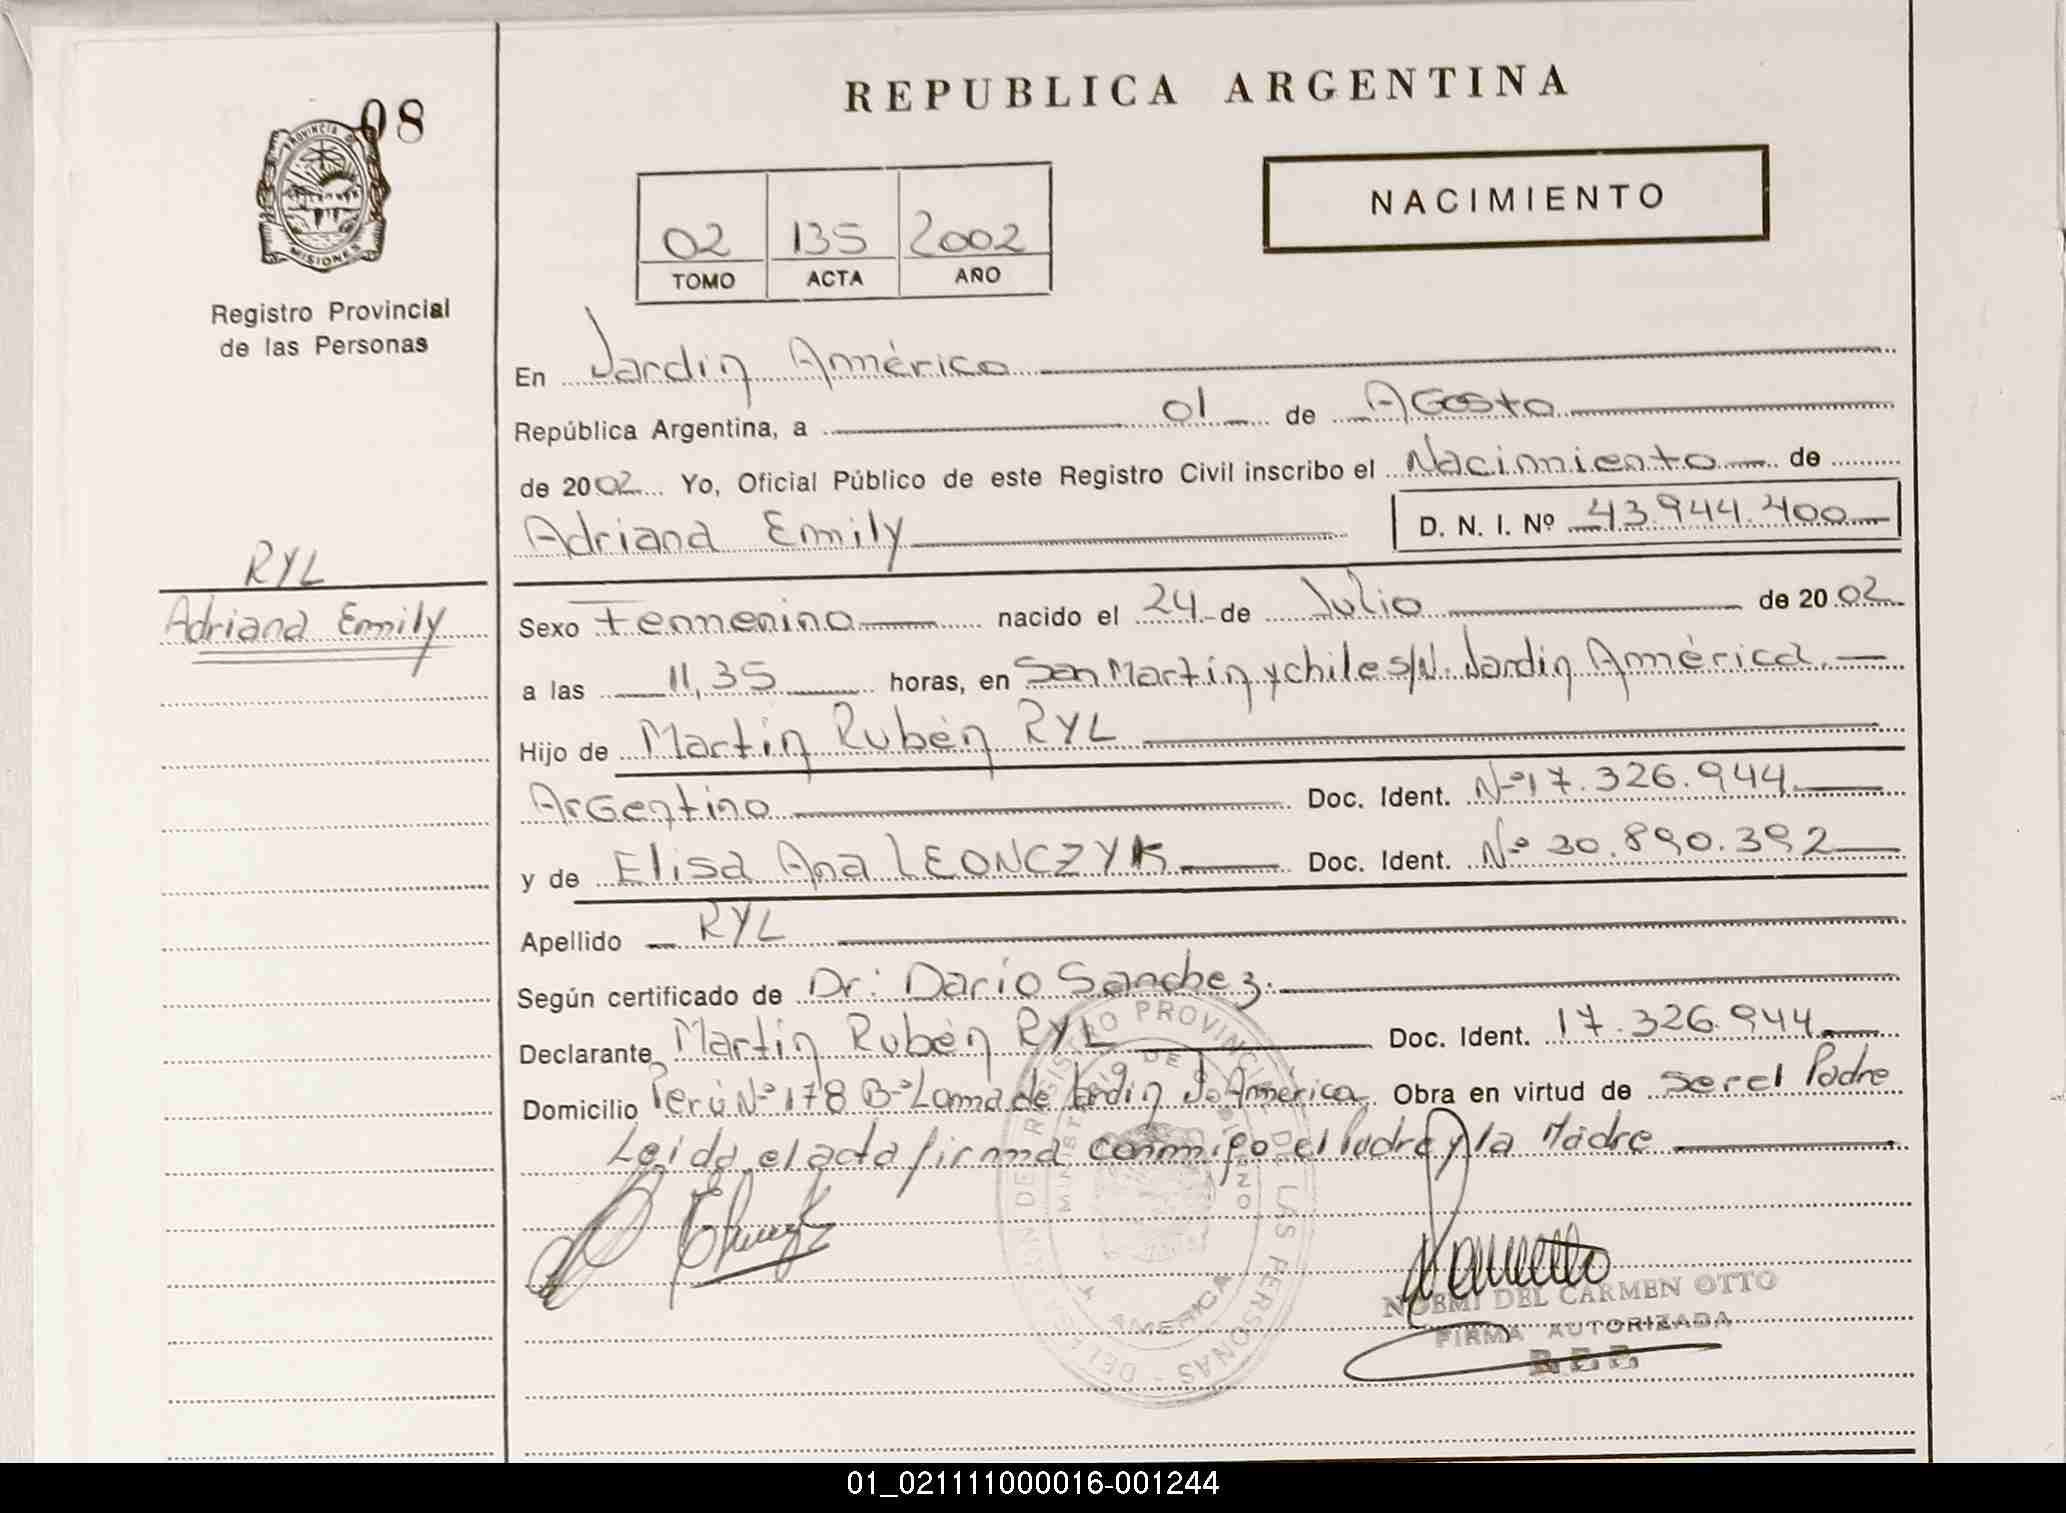 REPUBLICA ARGENTINA
08
PROVINCIA DE
MISIONES
Registro Provincial
de las Personas
NACIMIENTO
02 135 2002
TOMO ACTA AÑO
En Jardín América
República Argentina, a 01 de Agosto
de 2002 Yo, Oficial Público de este Registro Civil inscribo el Nacimiento de
Adriana Emily D. N. I. Nº 43.944.400
RYL
Adriana Emily
Sexo Femenino nacido el 24 de Julio de 2002
a las 11,35 horas, en San Martín y chile s/N. Jardín América
Hijo de Martín Rubén RYL
Argentino Doc. Ident. Nº 17.326.944
y de Elisa Ana LEONCZYK Doc. Ident. Nº 30.890.392
Apellido RYL
Según certificado de Dr: Darío Sanchez
Declarante Martín Rubén RYL Doc. Ident. 17.326.944
Domicilio Perú Nº 178 Bº Loma de Jardín J. América Obra en virtud de ser el Padre
Leída el acta firma conmigo el Padre y la Madre
REGISTRO PROVINCIAL DE LAS PERSONAS
AMERICA
NOEMI DEL CARMEN OTTO
FIRMA AUTORIZADA
01_021111000016-001244